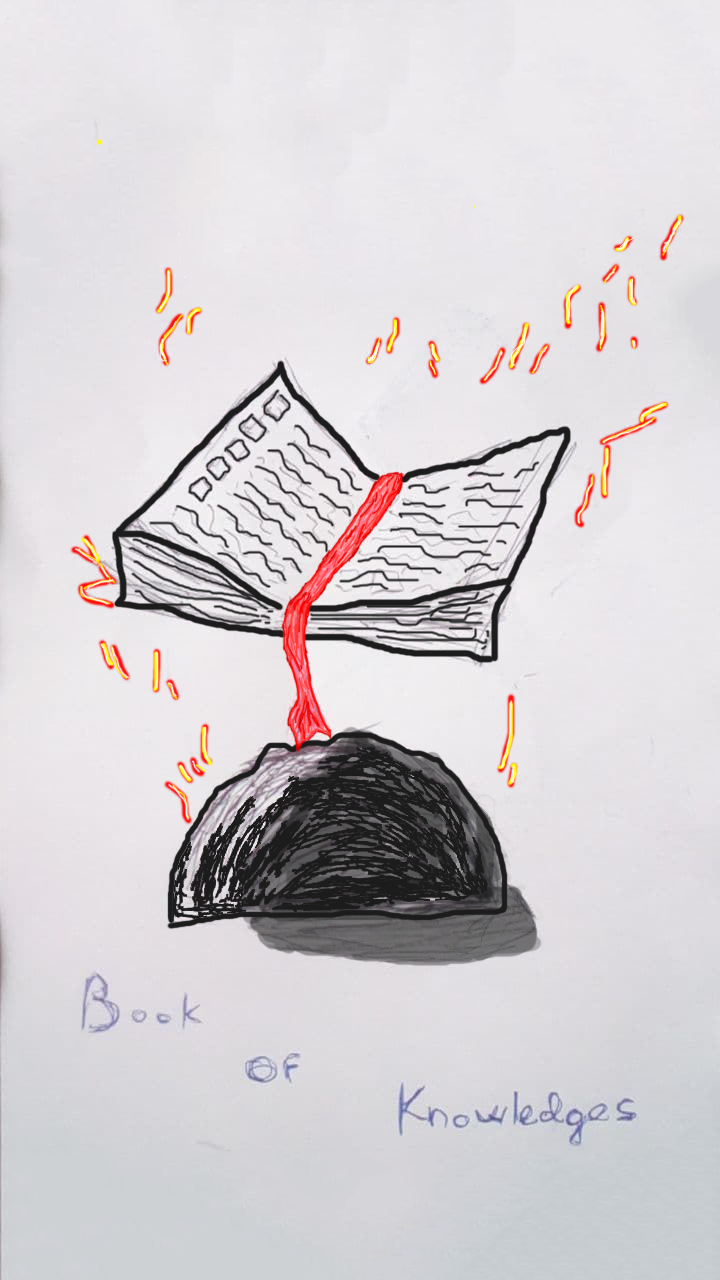 Book
OF
Knowledges